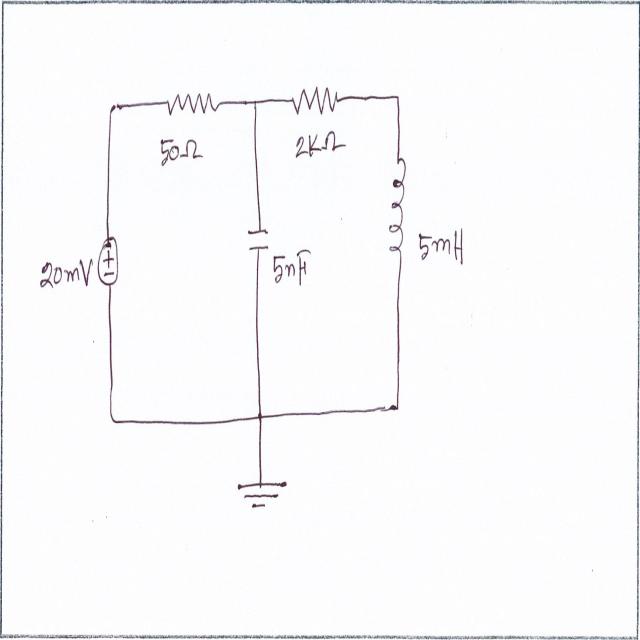 50Ω
2KΩ
20mV
+
−
5nF
5mH